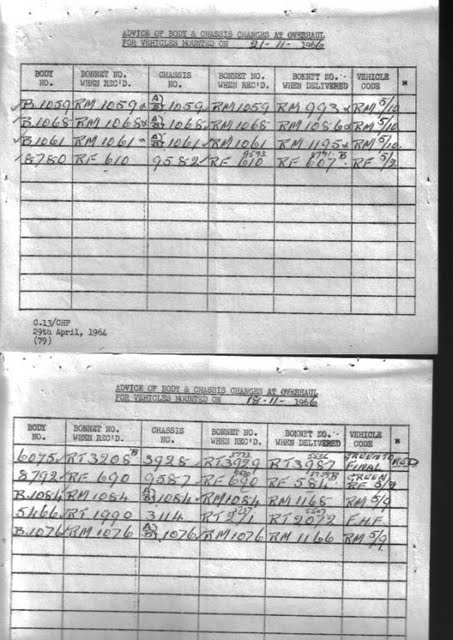 ADVICE OF BODY & CHASSIS CHANGES AT OVERHAUL
FOR VEHICLES MOUNTED ON 21-11-1966
BODY NO. BONNET NO. WHEN REC'D. CHASSIS NO. BONNET NO. WHEN REC'D. BONNET NO. WHEN DELIVERED VEHICLE CODE *
B.1059 RM 1059 A/B 1059 RM 1059 RM 993 RM 5/10
B.1068 RM 1068 A/B 1068 RM 1068 RM 1086 RM 5/10
B.1061 RM 1061 A/B 1061 RM 1061 RM 1195 RM 5/10
8780 RF 610 9582 RF 610 RF 607 RF 5/2
C.13/CHP
29th April, 1964
(79)
ADVICE OF BODY & CHASSIS CHANGES AT OVERHAUL
FOR VEHICLES MOUNTED ON 18-11-1966
BODY NO. BONNET NO. WHEN REC'D. CHASSIS NO. BONNET NO. WHEN REC'D. BONNET NO. WHEN DELIVERED VEHICLE CODE *
6075 RT 3208 B 3928 RT 3929 RT 3987 GREEN TO RED FINAL
8792 RF 690 9587 RF 690 RF 581 GREEN RF 5/2
B.1084 RM 1084 A/B 1084 RM 1084 RM 1168 RM 5/9
5466 RT 1990 3114 RT 271 RT 2072 FHF
B.1076 RM 1076 A/B 1076 RM 1076 RM 1166 RM 5/9